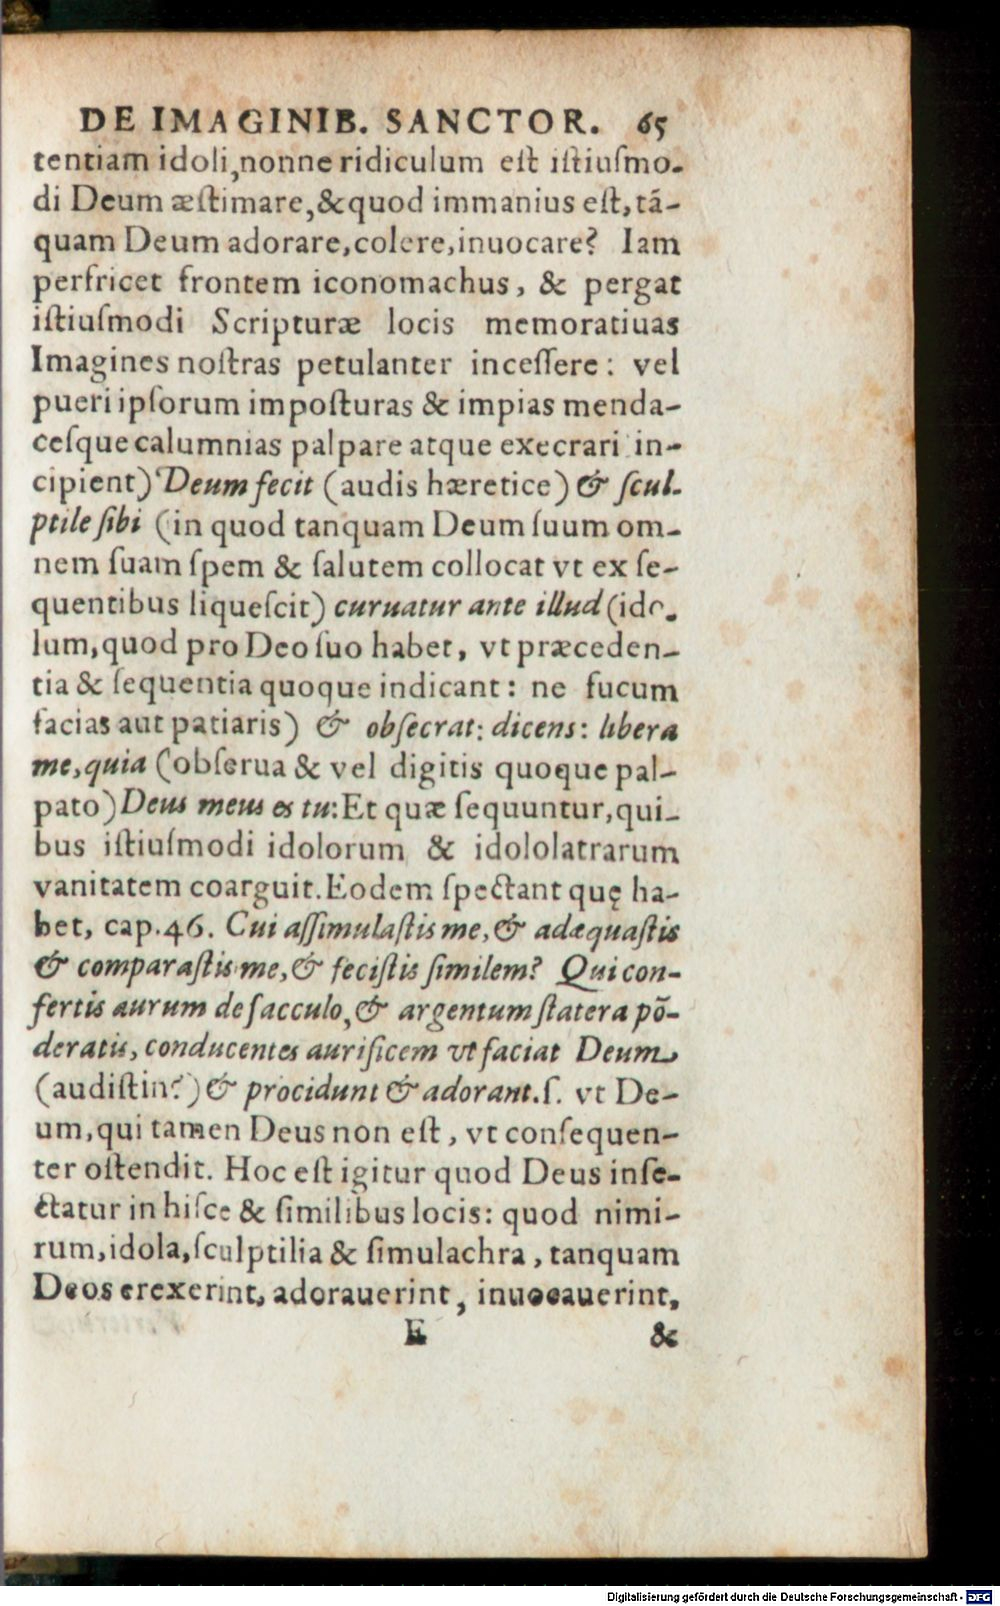 DE IMAGINIB. SANCTOR. 65
tentiam idoli,nonne ridiculum eſt iſtiuſmo-
di Deum æſtimare,&quod immanius eſt,tã-
quam Deum adorare,colere,inuocare? Iam
perfricet frontem iconomachus, & pergat
iſtiuſmodi Scripturæ locis memoratiuas
Imagines noſtras petulanter inceſſere: vel
pueri ipſorum impoſturas & impias menda-
ceſque calumnias palpare atque execrari in-
cipient) Deum fecit (audis hæretice) & ſcul-
ptile ſibi (in quod tanquam Deum ſuum om-
nem ſuam ſpem & ſalutem collocat vt ex ſe-
quentibus liqueſcit) curuatur ante illud (ido-
lum,quod pro Deo ſuo habet, vt præceden-
tia & ſequentia quoque indicant: ne fucum
facias aut patiaris) & obſecrat: dicens: libera
me,quia (obſerua & vel digitis quoque pal-
pato) Deus meus es tu:Et quæ ſequuntur,qui-
bus iſtiuſmodi idolorum & idololatrarum
vanitatem coarguit.Eodem ſpectant quę ha-
bet, cap.46. Cui aſſimulaſtis me,& adæquaſtis
& comparaſtis me,& feciſtis ſimilem? Qui con-
fertis aurum de ſacculo,& argentum ſtatera põ-
deratis, conducentes aurificem vt faciat Deum
(audiſtin?) & procidunt & adorant.ſ. vt De-
um,qui tamen Deus non eſt, vt conſequen-
ter oſtendit. Hoc eſt igitur quod Deus inſe-
ctatur in hiſce & ſimilibus locis: quod nimi-
rum,idola,ſculptilia & ſimulachra, tanquam
Deos erexerint, adorauerint, inuocauerint,
E &
Digitalisierung gefördert durch die Deutsche Forschungsgemeinschaft - DFG